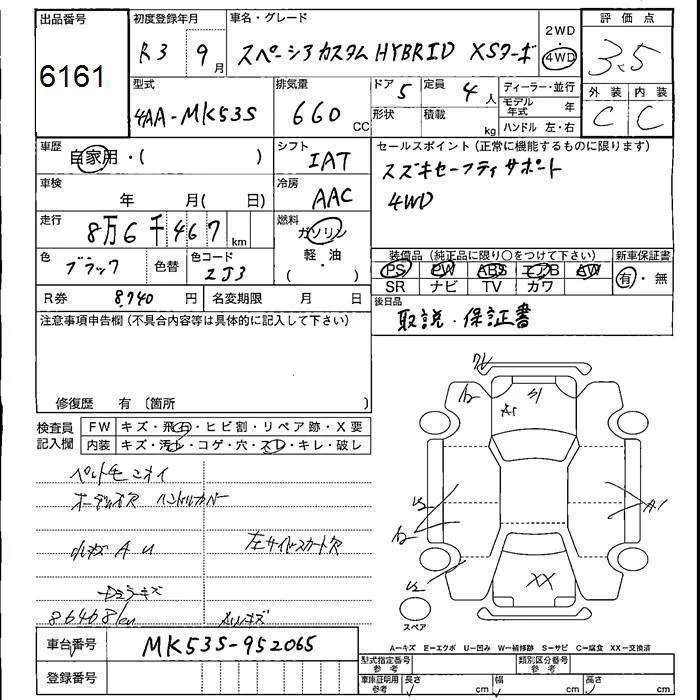 出品番号 初度登録年月 車名・グレード 2WD 4WD 評価点
6161 R3 9月 スペーシアカスタム HYBRID XSターボ 3.5
型式 排気量 ドア 5 定員 4人 ディーラー・並行 外装 内装
4AA-MK53S 660 CC 形状 積載 kg モデル年式 年 C C
ハンドル 左・右
車歴 自家用・( ) シフト IAT セールスポイント(正常に機能するものに限ります)
車検 年 月( 日) 冷房 AAC スズキセーフティサポート
4WD
走行 8万6千467km 燃料 ガソリン 軽・油 ( )
色 ブラック 色替 色コード ZJ3 装備品(純正品に限り○をつけて下さい) 新車保証書
PS PW ABS エアB AW 有・無
SR ナビ TV カワ
R券 8,740円 名変期限 月 日 後日品
取説・保証書
注意事項申告欄(不具合内容等は具体的に記入して下さい)
修復歴 有 〔箇所 〕
検査員記入欄 FW キズ・飛石・ヒビ割・リペア跡・X要
内装 キズ・汚レ・コゲ・穴・スレ・キレ・破し
ペット毛 ニオイ
オーディオ欠 ハンドルカバー
小キズ A U 左サイドスカート欠
86468km
A1
XX
スペア
A－キズ E－エクボ U－凹み W－補修跡 S－サビ C－腐食 XX－交換済
車台番号 MK53S-952065
登録番号
型式指定番号 参考 類別区分番号 参考
車庫証明用 参考 長さ cm 幅 cm 高さ cm